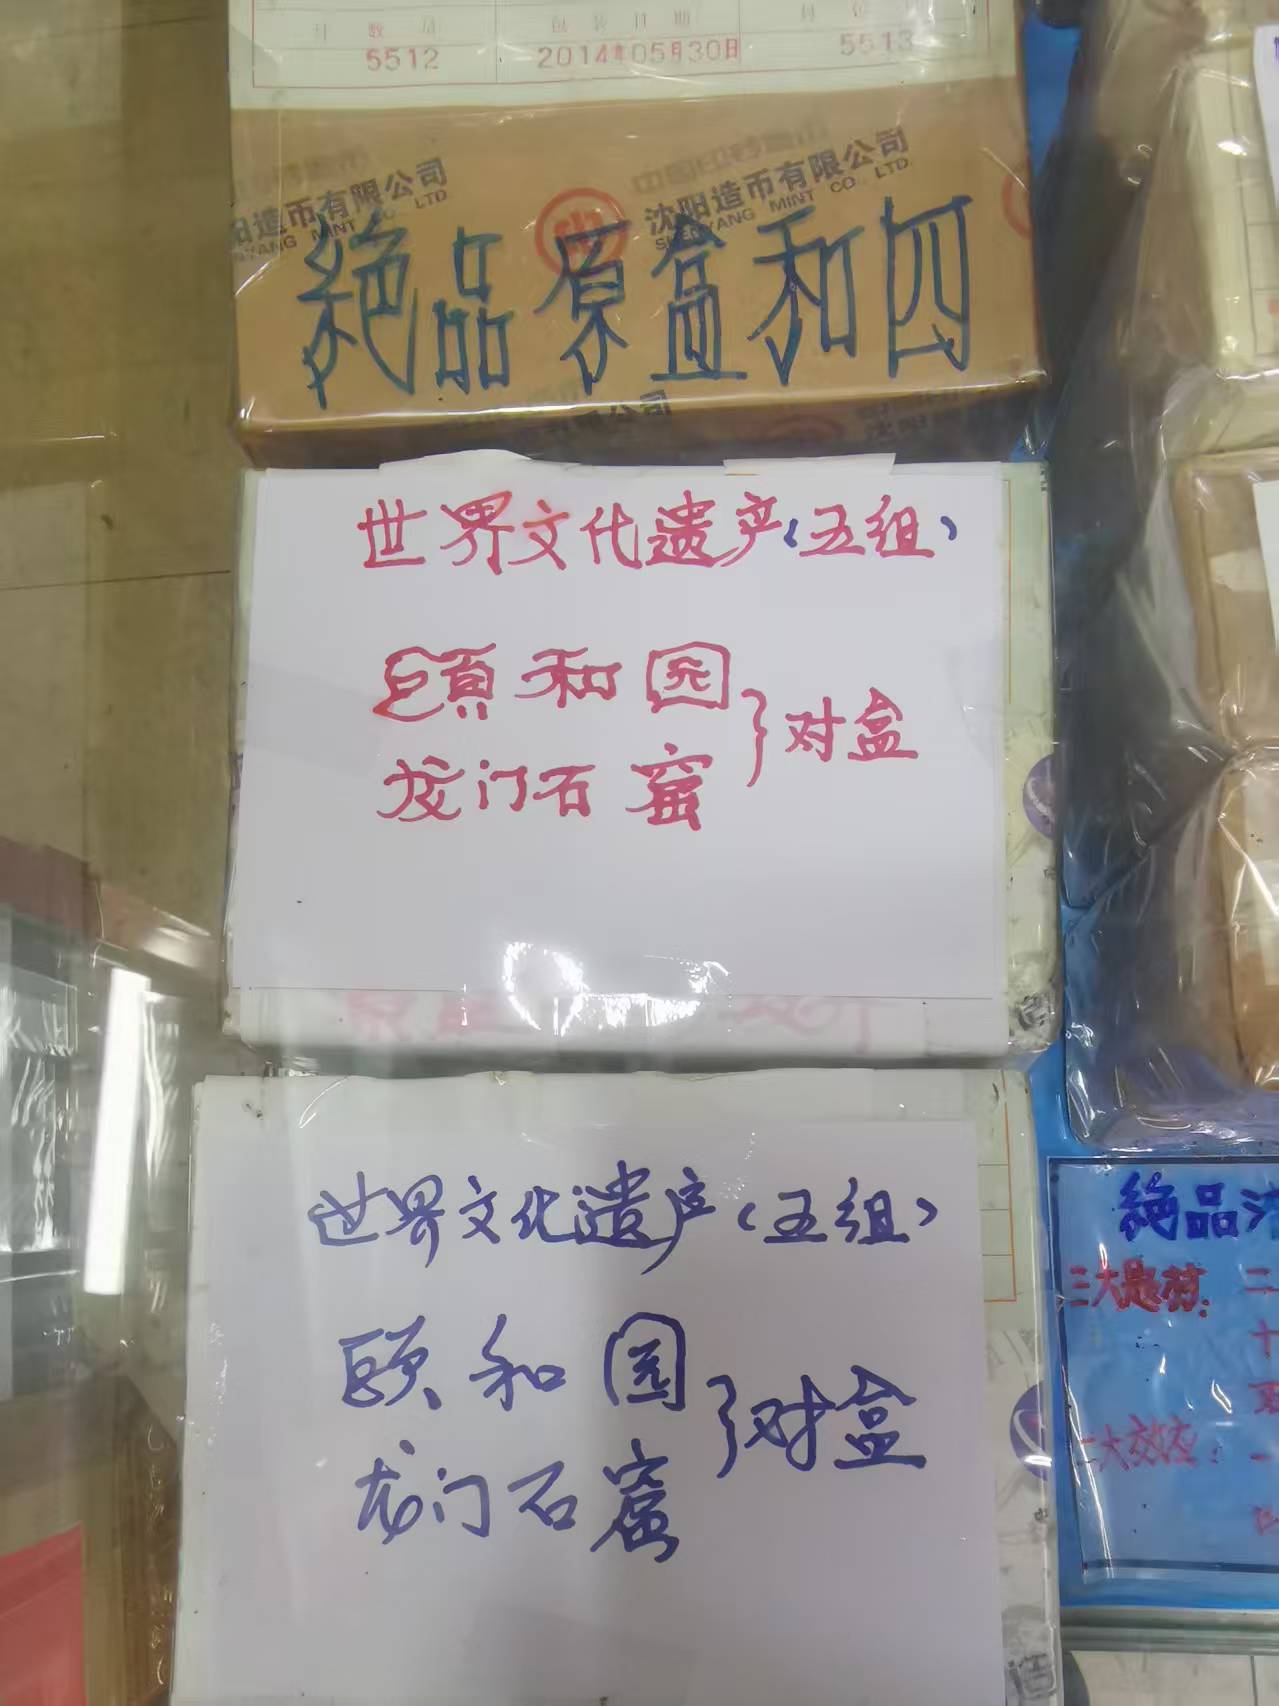 5512
包装日期
2014年05月30日
5513
沈阳造币有限公司
SHENYANG MINT CO., LTD
阳造币有限公司
YANG MINT CO., LTD
絶品原盒和四
世界文化遗产(五组)
頤和园
龙门石窟
}对盒
世界文化遗产(五组)
颐和园
龙门石窟
}对盒
絶品
三大悬疑:
二
十
二大效应:
一